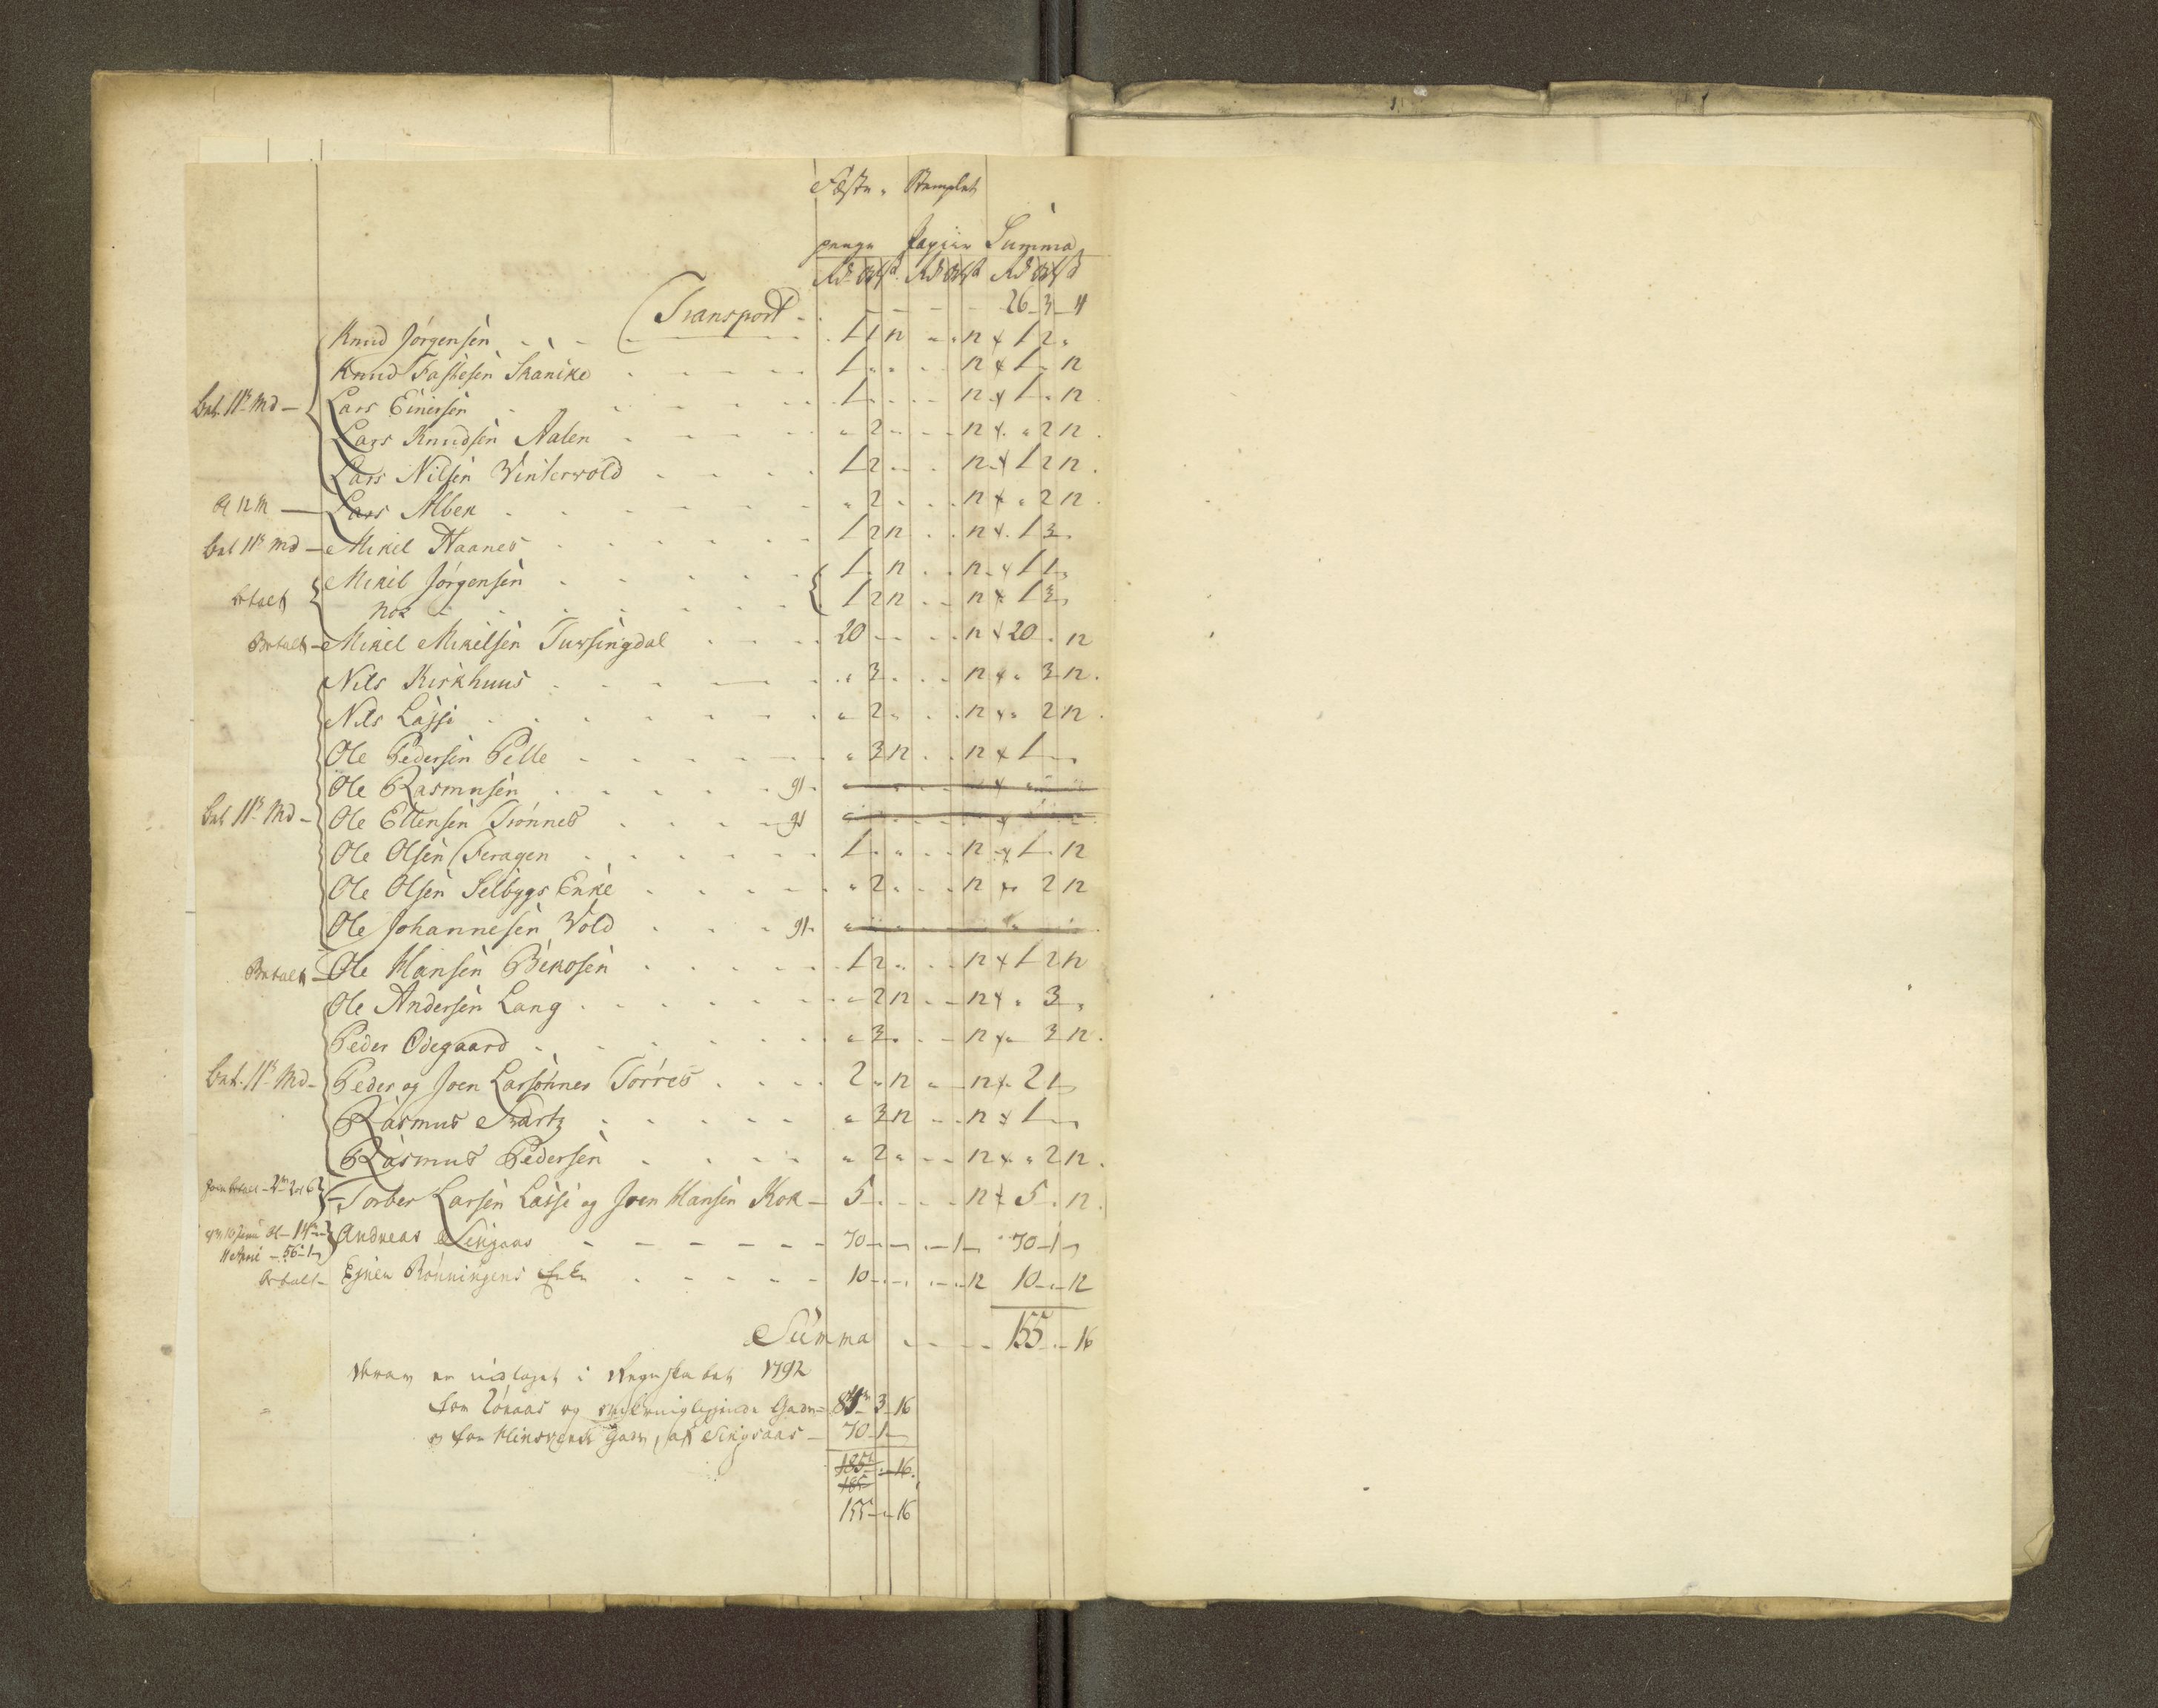 Fæste, Stemplet
penge Papiir Summa
Rd Ort ß Rd Ort ß Rd Ort ß
Transport - - - - 26 - 3 - 4
Knud Jörgensen - - - 1 1 12 - - 12 1 2 -
Knud Fastesen Skanike - - - 1 - - - - 12 1 - 12
bet. 11te Md - Lars Einersen - - - 1 - - - - 12 1 - 12
Lars Knudsen Aalen - - - - 2 - - - 12 - 2 12
Lars Nilsen Winterwold - - - 1 2 - - - 12 1 2 12
Lars Alben - - - - 2 - - - 12 - 2 12
bet 11te Md - Mikel Haanes - - - 1 2 12 - - 12 1 3 -
Mikel Jörgensen - - - 1 - 12 - - 12 1 1 -
betalt nok - - - 1 2 12 - - 12 1 3 -
Betalt - Mikel Mikelsen Tufsingdal - - - 20 - - - - 12 20 - 12
Nils Kirkhuus - - - - 3 - - - 12 - 3 12
Nils Lassi - - - - 2 - - - 12 - 2 12
Ole Pedersen Pelle - - - - 3 12 - - 12 1 - -
Ole Rasmusen - - -
bet 11te Md - Ole Ellensen Trönnes - - -
Ole Olsen Feragen - - - 1 - - - - 12 1 - 12
Ole Olsen Selbygs Enke - - - - 2 - - - 12 - 2 12
Ole Johannesen Vold - - -
Betalt - Ole Hansen Bekosen - - - 1 2 - - - 12 1 2 12
Ole Andersen Lang - - - - 2 12 - - 12 - 3 -
Peder Ödegaard - - - - 3 - - - 12 - 3 12
bet. 11te Md - Peder og Joen Larsönner Torres - - - 2 - 12 - - 12 2 1 -
Rasmus Svartz - - - - 3 12 - - 12 1 - -
Rasmus Pedersen - - - - 2 - - - 12 - 2 12
Torber Larsen Lassi og Joen Hansen Kok - 5 - - - - 12 5 - 12
Andreas Singaas - - - 70 - - - 1 - 70 - 1 -
betalt - Ejner Rönningens Enke - - - 10 - - - - 12 10 - 12
Summa - - - 155 - 16
Heraf er indtaget i Regnskabet 1792
for Röraas og omkringliggende Gader - 84 - 3 - 16
og for Gade, af Singsaas - 70 - 1 -
185 - 16
185
155 - 16